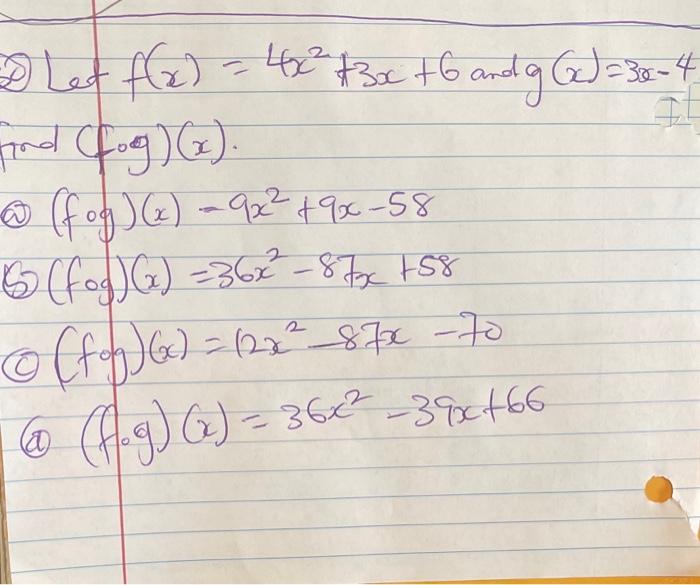 ② Let f(x) = 4x² + 3x + 6 and g(x) = 3x - 4
find (fog)(x).
ⓐ (fog)(x) - 9x² + 9x - 58
ⓑ (fog)(x) = 36x² - 87x + 58
ⓒ (fog)(x) = 12x² - 87x - 70
ⓓ (fog)(x) = 36x² - 39x + 66